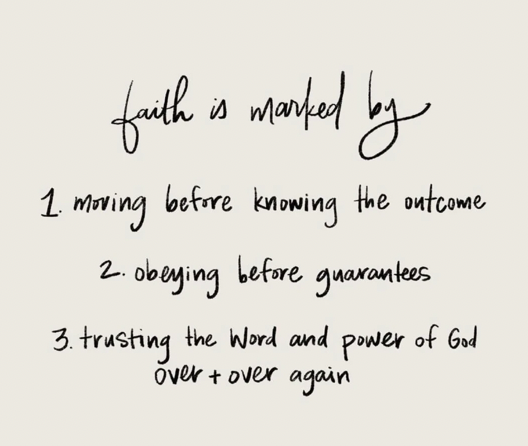 faith is marked by
1. moving before knowing the outcome
2. obeying before guarantees
3. trusting the Word and power of God
over + over again